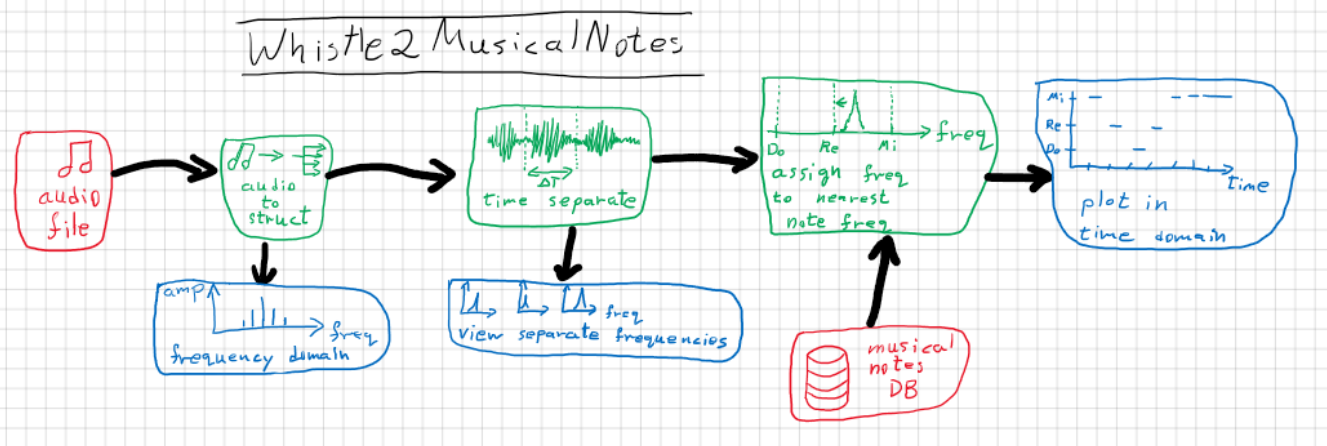 Whistle2MusicalNotes
audio
file
audio
to
struct
amp
freq
frequency domain
ΔT
time separate
freq
view separate frequencies
freq
Do Re Mi
assign freq
to nearest
note freq
musical
notes
DB
Mi
Re
Do
time
plot in
time domain